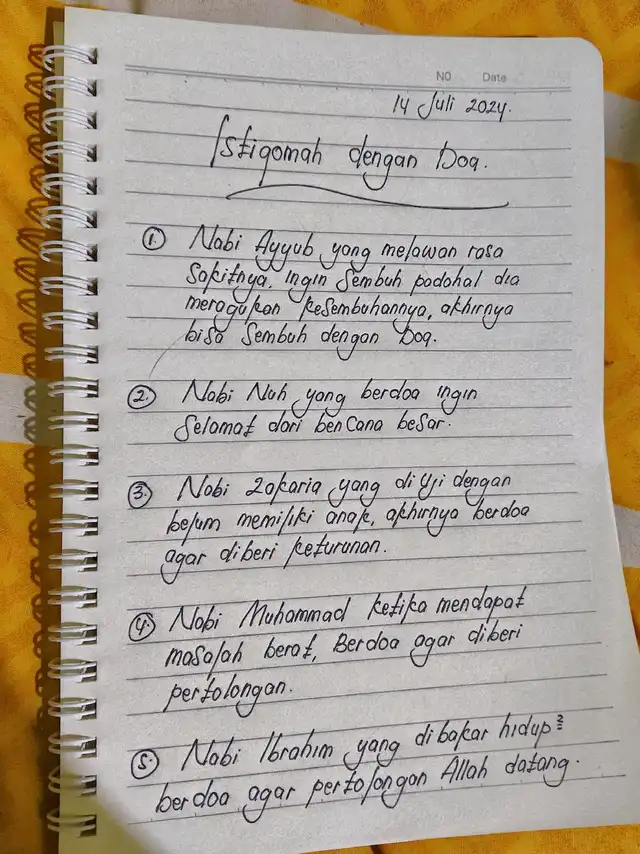 NO Date
14 Juli 2024.
Istiqomah dengan Doa.
1. Nabi Ayyub yang melawan rasa
sakitnya. ingin sembuh padahal dia
meragukan kesembuhannya, akhirnya
bisa sembuh dengan Doa.
2. Nabi Nuh yang berdoa ingin
selamat dari bencana besar.
3. Nabi Zakaria yang di uji dengan
belum memiliki anak, akhirnya berdoa
agar diberi keturunan.
4. Nabi Muhammad ketika mendapat
masalah berat, Berdoa agar diberi
pertolongan.
5. Nabi Ibrahim yang dibakar hidup²
berdoa agar pertolongan Allah datang.